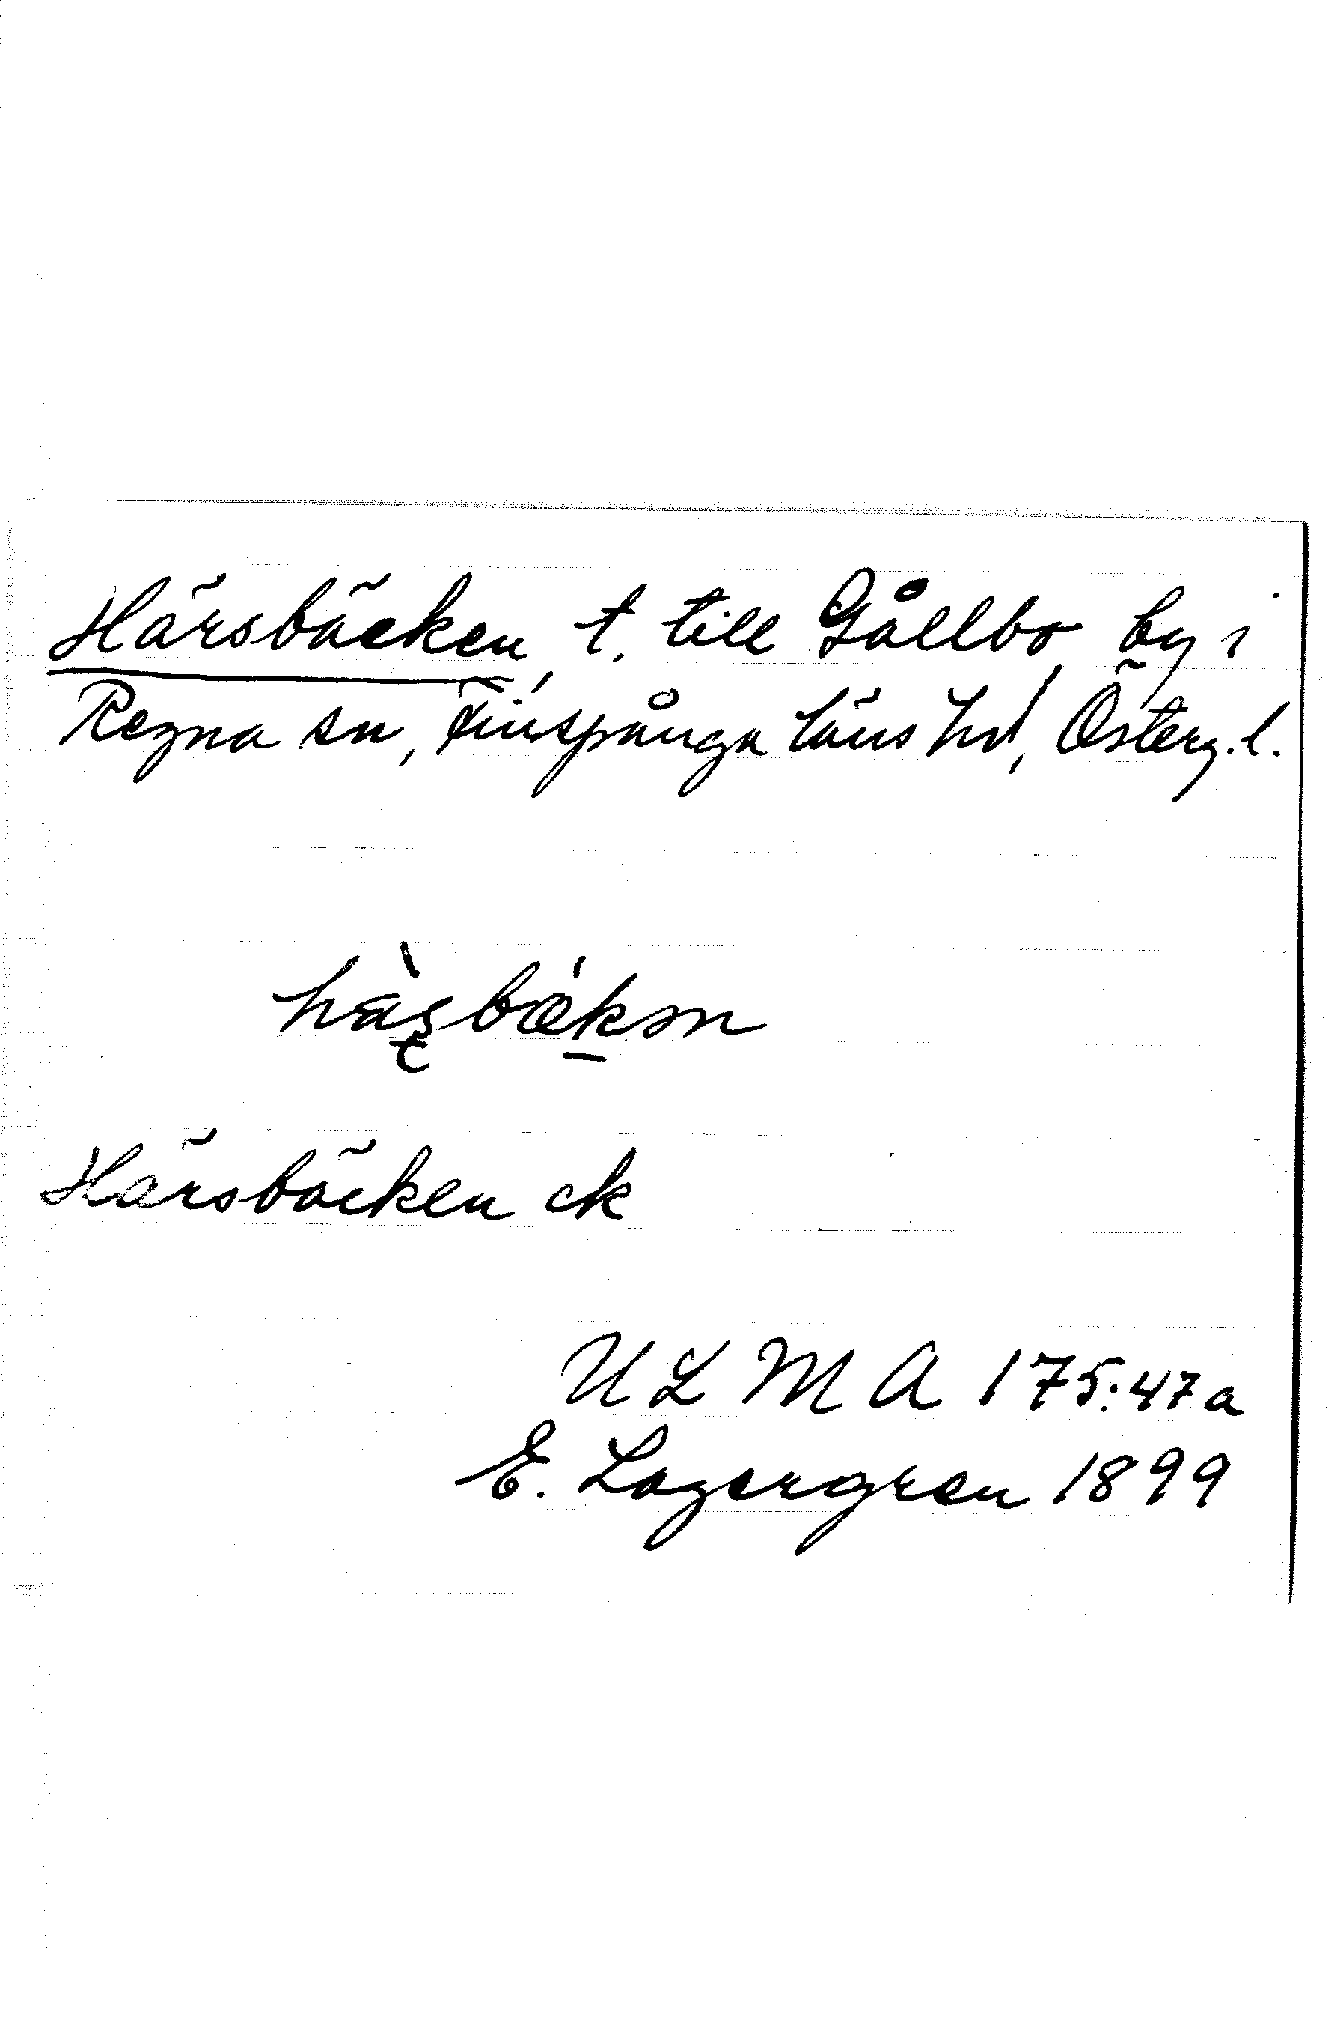 Härsbäcken, t. till Gållbo, by i
Regna sn, Finspånga läns hd, Österg.l.
Härsbäcken ek
U L M A 175:47a
E. Lagergren 1899